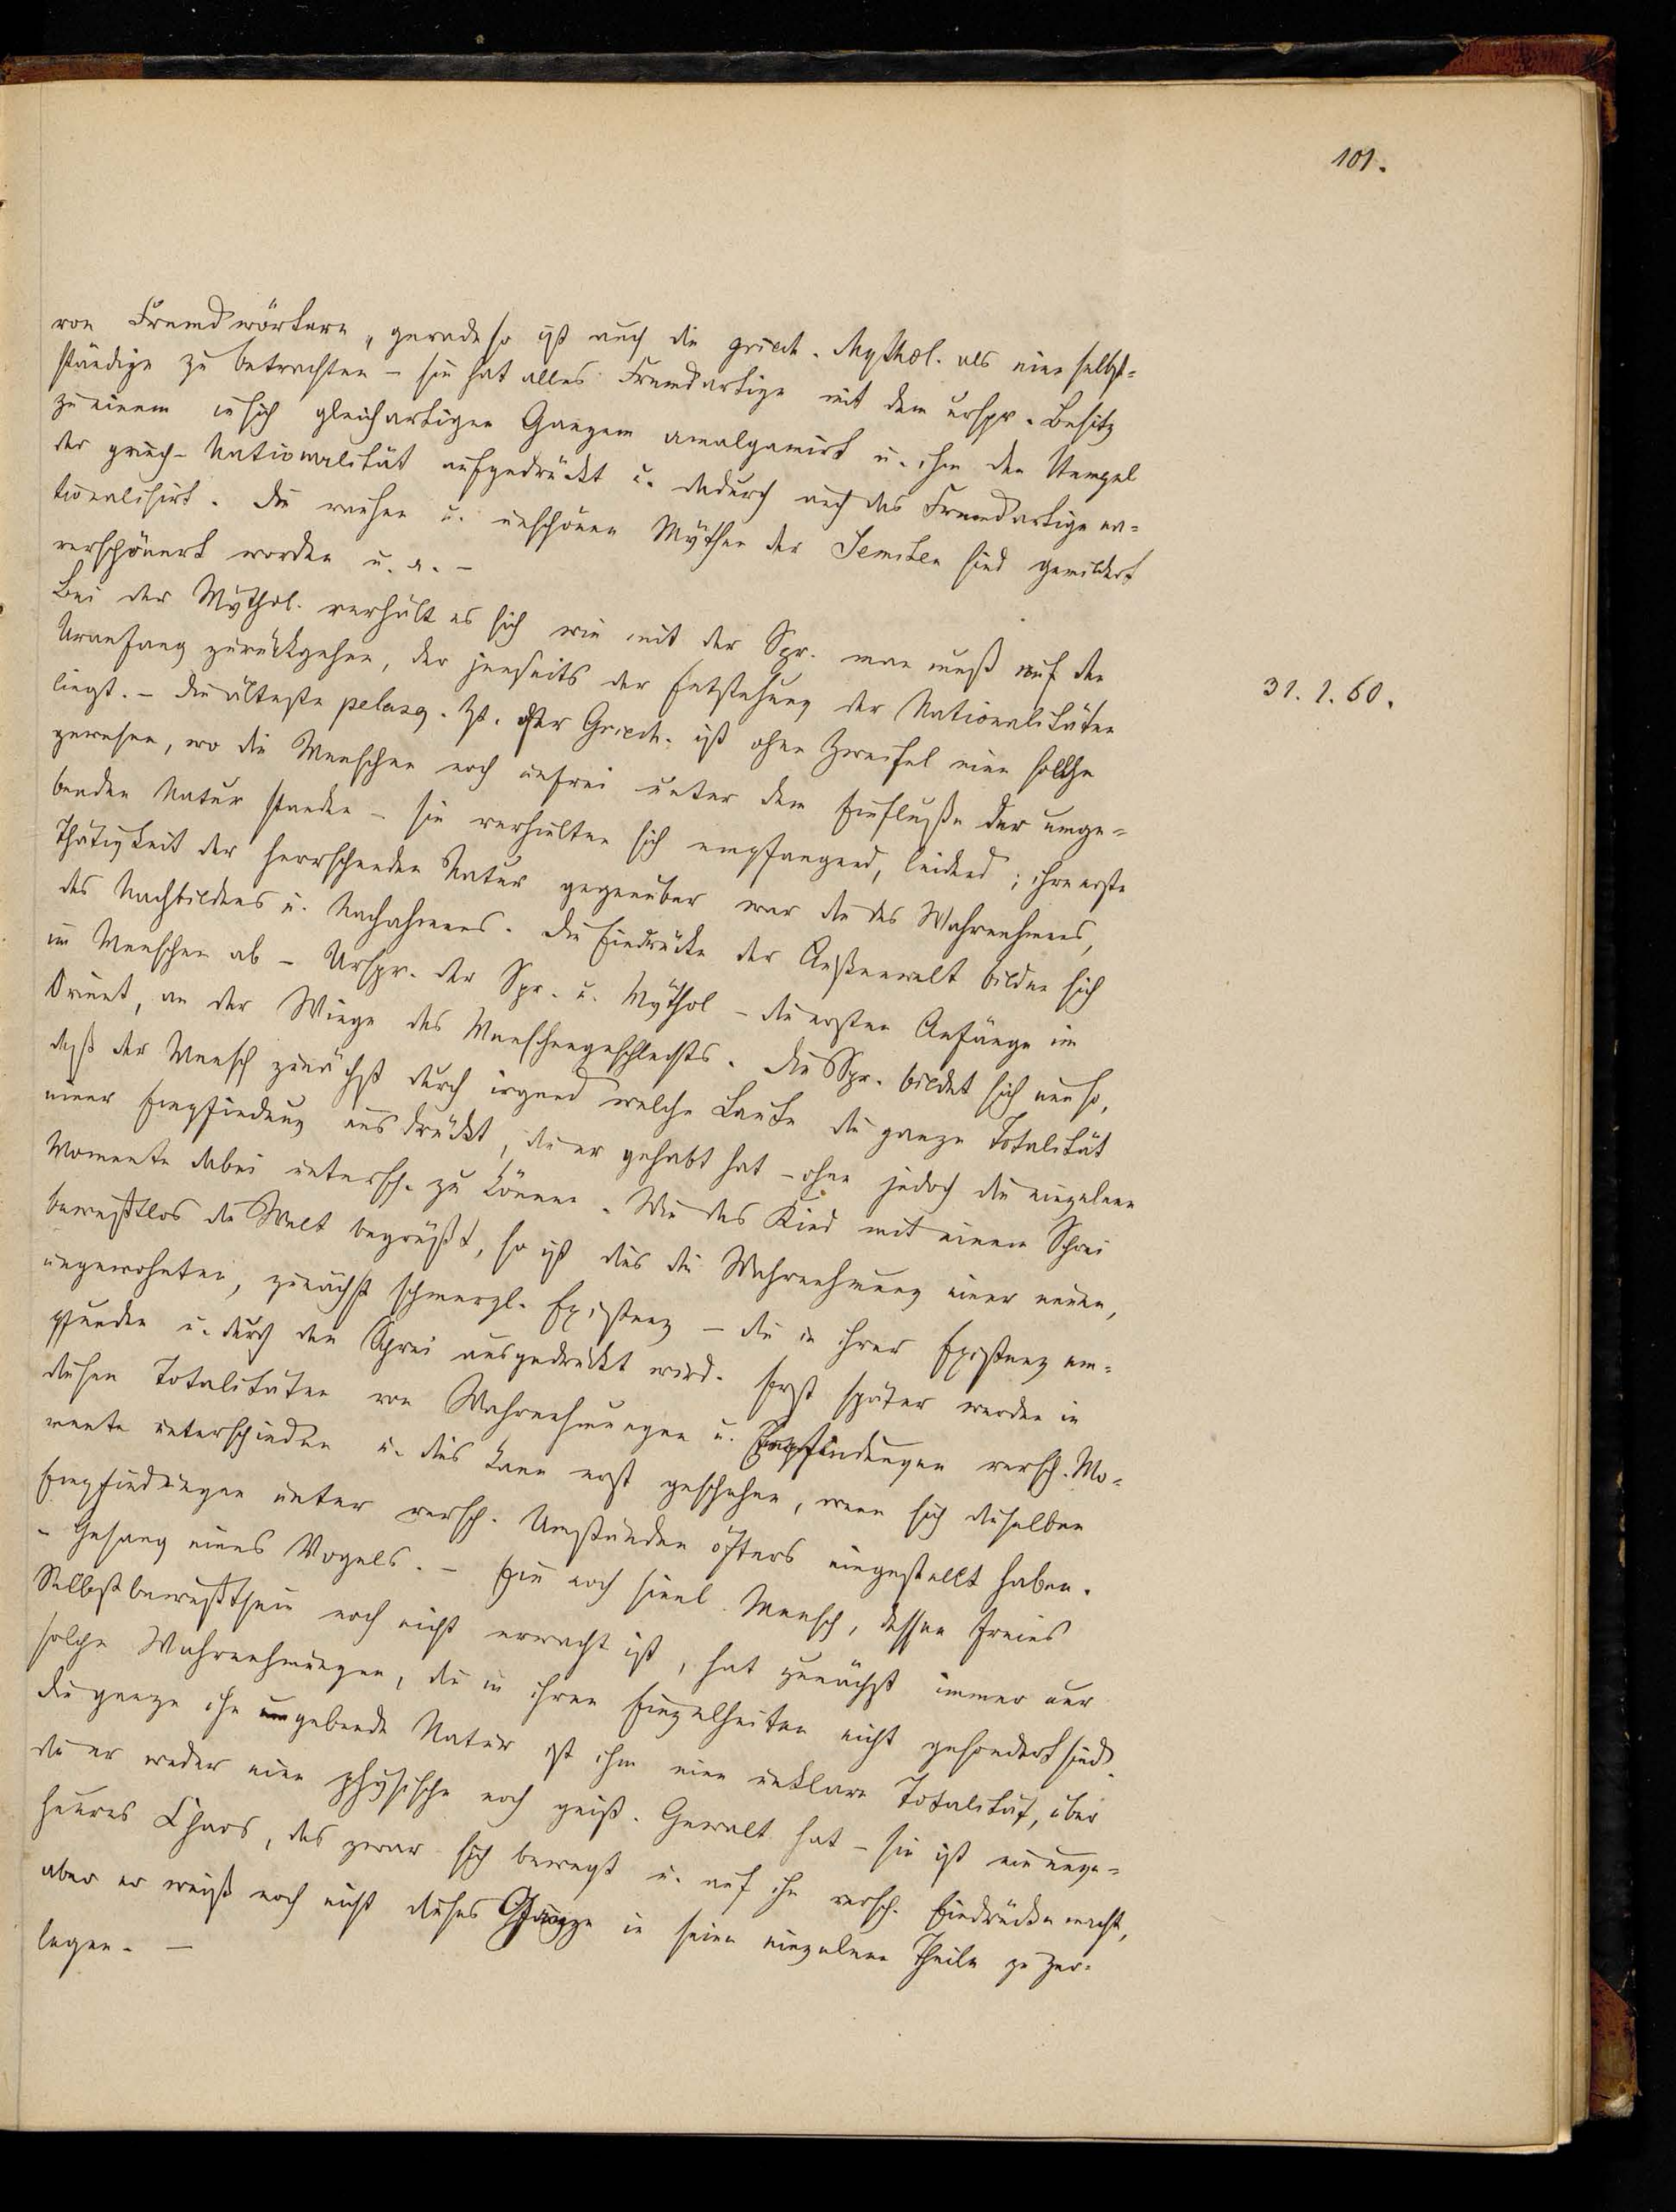 101.
von Fremdwörtern, geradeso ist auch die griech. Mythol. als eine selbst=
ständige zu betrachten – sie hat alles Fremdartige mit dem urspr. Besitz
zu einem in sich gleichartigen Ganzen amalgamirt u. ihm den Stempel
der griech. Nationalität aufgedrückt u. dadurch auch das Fremdartige na=
tionalisirt. Die rauhen u. unschönen Mythen der Semiten sind gemildert
verschönert worden u. a. –
Bei der Mythol. verhält es sich wie mit der Spr. man muß auf den
Uranfang zurückgehen, der jenseits der Entstehung der Nationalitäten
liegt. – Die älteste pelasg. Zt. der Griech. ist ohne Zweifel eine solche
31. 1. 60.
gewesen, wo die Menschen noch unfrei unter dem Einfluße der umge=
benden Natur standen – sie verhielten sich empfangend, leidend; ihre erste
Thätigkeit der herrschenden Natur gegenüber war die des Wahrnehmens,
des Nachbildens u. Nachahmens. Die Eindrücke der Außenwelt bilden sich
im Menschen ab – Urspr. der Spr. u. Mythol – die ersten Anfänge im
Orient, an der Wiege des Menschengeschlechts. Die Spr. bildet sich nun so,
daß der Mensch zunächst durch irgend welche Laute die ganze Totalität
einer Empfindung ausdrückt, die er gehabt hat – ohne jedoch die einzelnen
Momente dabei untersch. zu können. Wie das Kind mit einem Schrei
bewußtlos die Welt begrüßt, so ist dies die Wahrnehmung einer neuen,
ungewohnten, zunächst schmerzl. Existenz – die in ihrer Existenz em=
pfunden u. durch den Schrei ausgedrückt wird. Erst später werden in
diesen Totalitäten von Wahrnehmungen u. Empfindungen versch. Mo=
mente unterschieden u. dies kann erst geschehen, wenn sich dieselben
Empfindungen unter versch. Umständen öfters eingestellt haben.
– Gesang eines Vogels. – Ein noch sinnl. Mensch, dessen freies
Selbstbewußtsein noch nicht erwacht ist, hat zunächst immer nur
solche Wahrnehmungen, die in ihren Einzelheiten nicht gesondert sind.
Die ganze ihn umgebende Natur ist ihm eine unklare Totalität, über
die er weder eine physische noch geist. Gewalt hat – sie ist ein unge=
heures Chaos, das zwar sich bewegt u. auf ihn versch. Eindrücke macht,
aber er weiß noch nicht dieses Ganze in seine einzelnen Theile zu zer=
legen. –